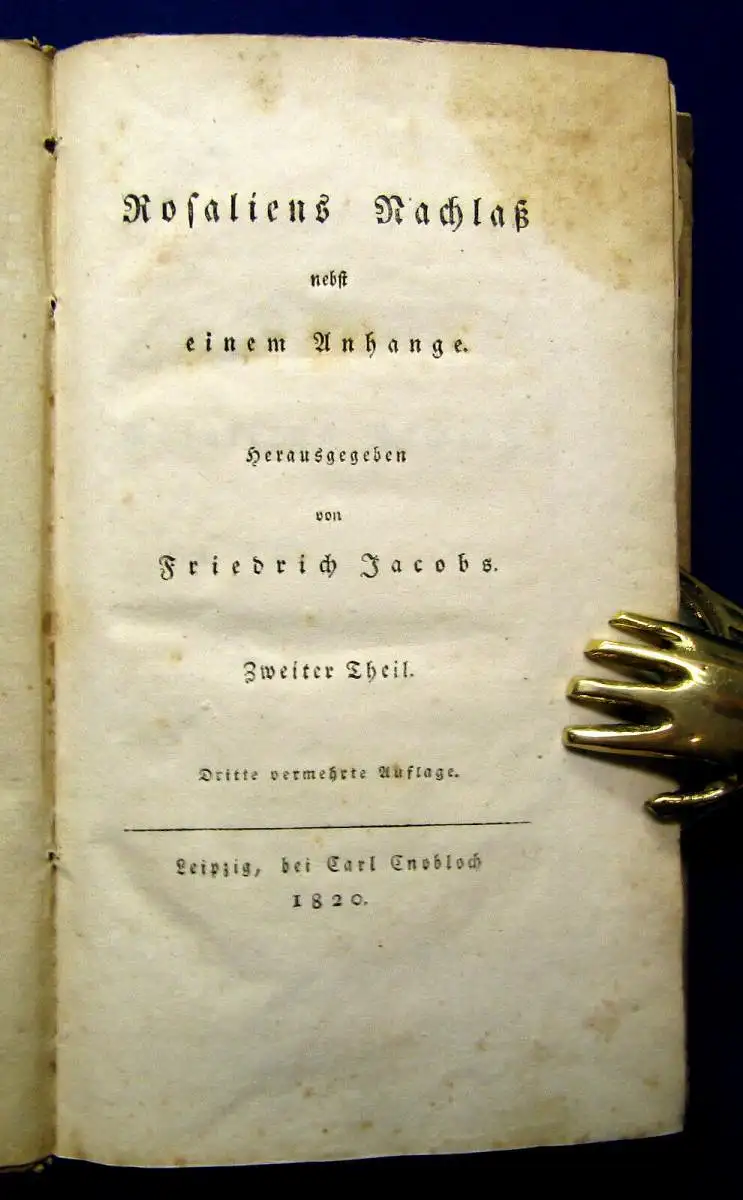 Roſaliens Nachlaß
nebſt
einem Anhange.
Herausgegeben
von
Friedrich Jacobs.
Zweiter Theil.
Dritte vermehrte Auflage.
Leipzig, bei Carl Cnobloch
1820.